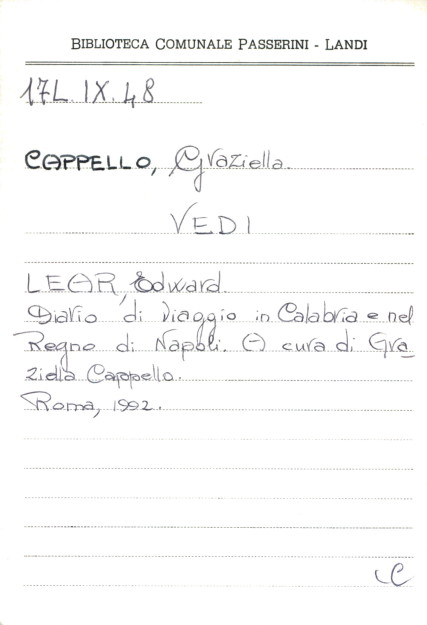 BIBLIOTECA COMUNALE PASSERINI - LANDI
17L.IX.48
CAPPELLO, Graziella.
VEDI
LEAR, Edward.
Diario di viaggio in Calabria e nel
Regno di Napoli. A cura di Gra
ziella Cappello.
Roma, 1992.